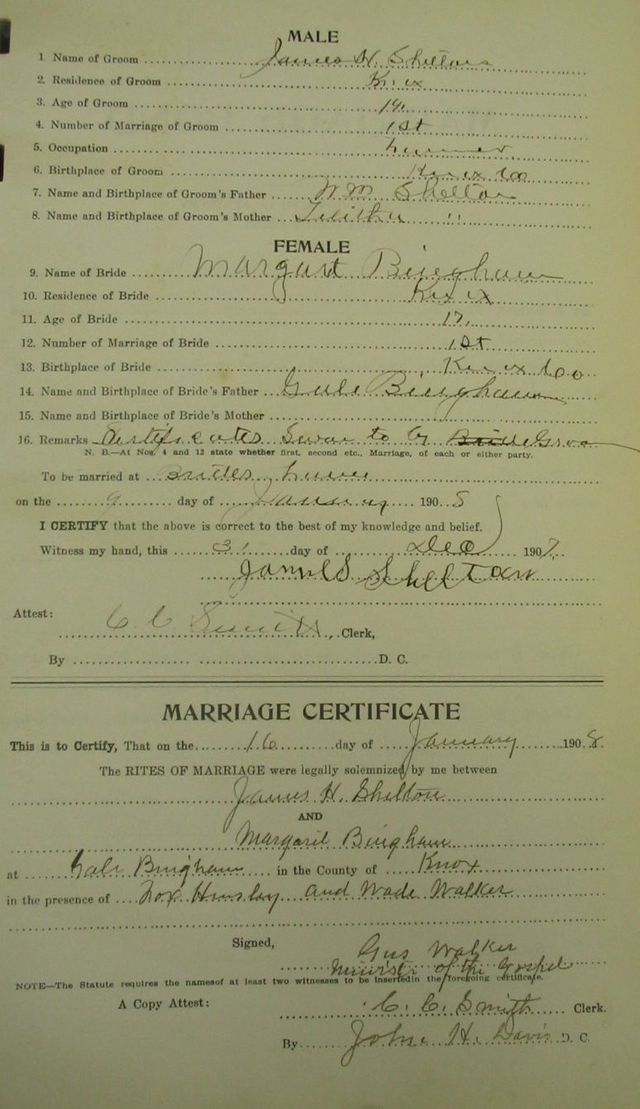 MALE
1 Name of Groom James H. Shelton
2. Residence of Groom Knox
3. Age of Groom 19.
4. Number of Marriage of Groom 1st
5. Occupation
6. Birthplace of Groom Knox Co
7. Name and Birthplace of Groom's Father Wm Shelton
8. Name and Birthplace of Groom's Mother "
FEMALE
9. Name of Bride Margart Bingham
10. Residence of Bride Knox
11. Age of Bride 17.
12. Number of Marriage of Bride 1st
13. Birthplace of Bride Knox Co
14. Name and Birthplace of Bride's Father Gale Bingham
15. Name and Birthplace of Bride's Mother
16. Remarks Certificates Swan to by Groom
N. B.—At Nos. 4 and 12 state whether first, second etc., Marriage, of each or either party.
To be married at Brides
on the 9 day of January 1908
I CERTIFY that the above is correct to the best of my knowledge and belief.
Witness my hand, this 31 day of Dec 1907.
James Sheltan
Attest:
C. C. Smith, Clerk,
By D. C.
MARRIAGE CERTIFICATE
This is to Certify, That on the 16 day of January 1908.
The RITES OF MARRIAGE were legally solemnized by me between
James H. Shelton
AND
Margaret Bingham
at Gale Bingham in the County of Knox
in the presence of and Wade Walker
Signed, Gus Walker
Minister of the Gospel
NOTE—The Statute requires the namesof at least two witnesses to be insertedin the foregoing certificate.
A Copy Attest: C. C. Smith Clerk.
By John H. Davis D. C.